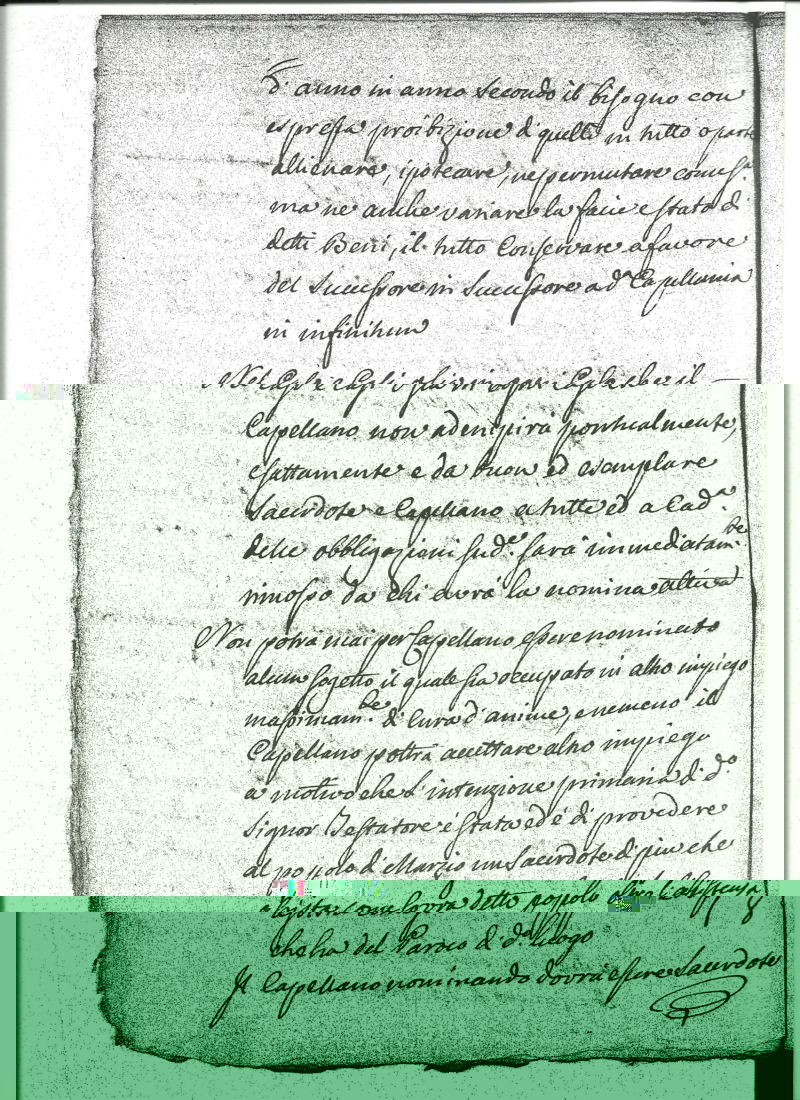 d'anno in anno secondo il bisogno con
espressa proibizione di quelli in tutto o parte
allienare, ipotecare, ne permutare come sa.
ma ne anche variare la facie e stato di
detti Beni, il tutto Conservare a favore
del Successore in Successore a da Capellania
in infinitum
Capellano non adempirà pontualmente,
esattamente e da buon ed esemplare
Sacerdote e Capellano a tutte ed a Cada.
delle obbligazioni sude. sarà immediatam.te
rimosso da chi avrà la nomina attiva
Non potrà mai per Capellano essere nominato
alcun sogetto il quale sia occupato in altro impiego
massimam.te di Cura d'anime, e nemeno il
Capellano pottrà accettare altro impiego
a motivo che l'intenzione primaria di do.
Signor Testatore è stata ed è di provedere
al popolo d'Marzio un Sacerdote di più che
detto popolo oltre l'assistenza
che ha del Paroco di do. luogo
Il Capellano nominando dovrà essere Sacerdote